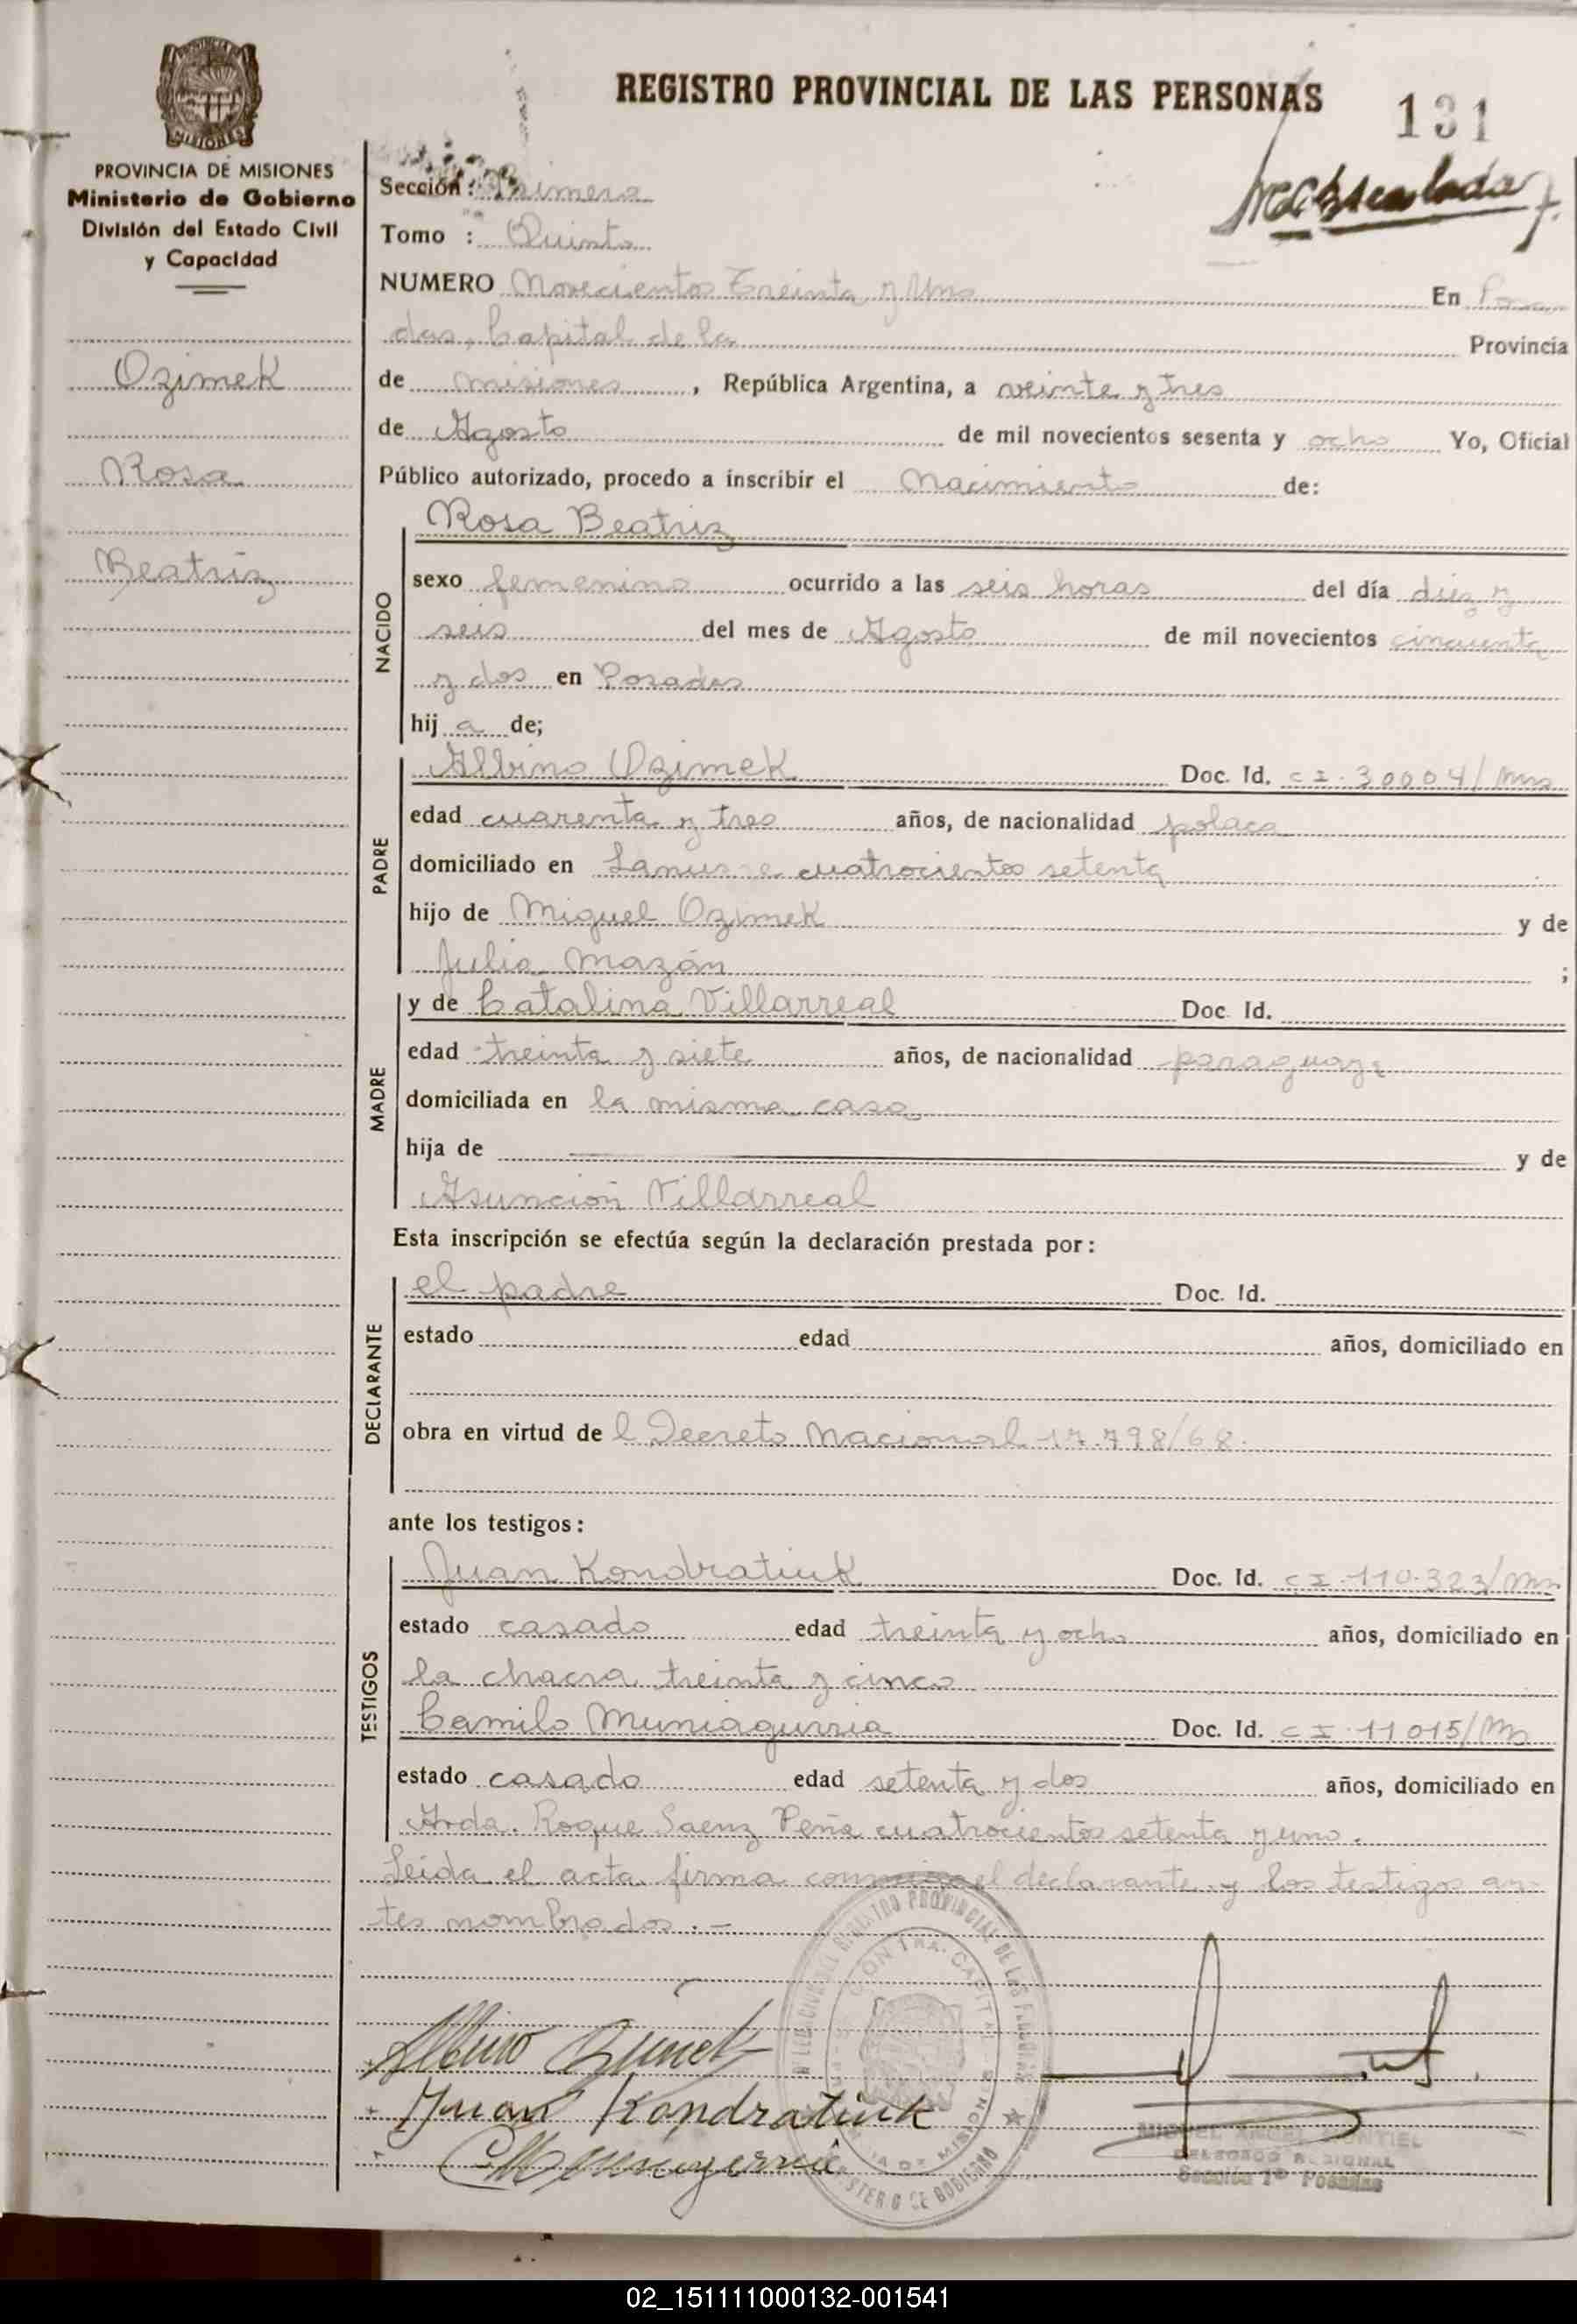 REGISTRO PROVINCIAL DE LAS PERSONAS
131
PROVINCIA DE MISIONES
Ministerio de Gobierno
División del Estado Civil
y Capacidad
Ozimek
Rosa
Beatriz
Sección: Primera
Tomo : Quinto
NUMERO Novecientos Treinta y Uno En Posa
das, Capital de la Provincia
de Misiones, República Argentina, a veinte y tres
de Agosto de mil novecientos sesenta y ocho Yo, Oficial
Público autorizado, procedo a inscribir el Nacimiento de:
NACIDO
Rosa Beatriz
sexo femenino ocurrido a las seis horas del día diez y
seis del mes de Agosto de mil novecientos cincuenta
y dos en Posadas
hij a de;
PADRE
Albino Ozimek Doc. Id. CI. 30004/Mns
edad cuarenta y tres años, de nacionalidad polaca
domiciliado en Lanusse cuatrocientos setenta
hijo de Miguel Ozimek y de
Julia Mazán ;
MADRE
y de Catalina Villarreal Doc Id.
edad treinta y siete años, de nacionalidad paraguaya
domiciliada en la misma casa
hija de y de
Asunción Villarreal
Esta inscripción se efectúa según la declaración prestada por:
DECLARANTE
el padre Doc. Id.
estado edad años, domiciliado en
obra en virtud de l Decreto Nacional 17.798/68.
ante los testigos:
TESTIGOS
Juan Kondratiuk Doc. Id. CI. 110.323/Mns
estado casado edad treinta y ocho años, domiciliado en
la chacra treinta y cinco
Camilo Muniagurria Doc. Id. CI. 11015/Mns
estado casado edad setenta y dos años, domiciliado en
Avda. Roque Saenz Peña cuatrocientos setenta y uno.
Leida el acta firma conmigo el declarante y los testigos an-
tes nombrados.-
Albino Ozimek
Juan Kondratiuk
MIGUEL ANGEL MONTIEL
DELEGADO REGIONAL
Sección 1ª Posadas
02_151111000132-001541